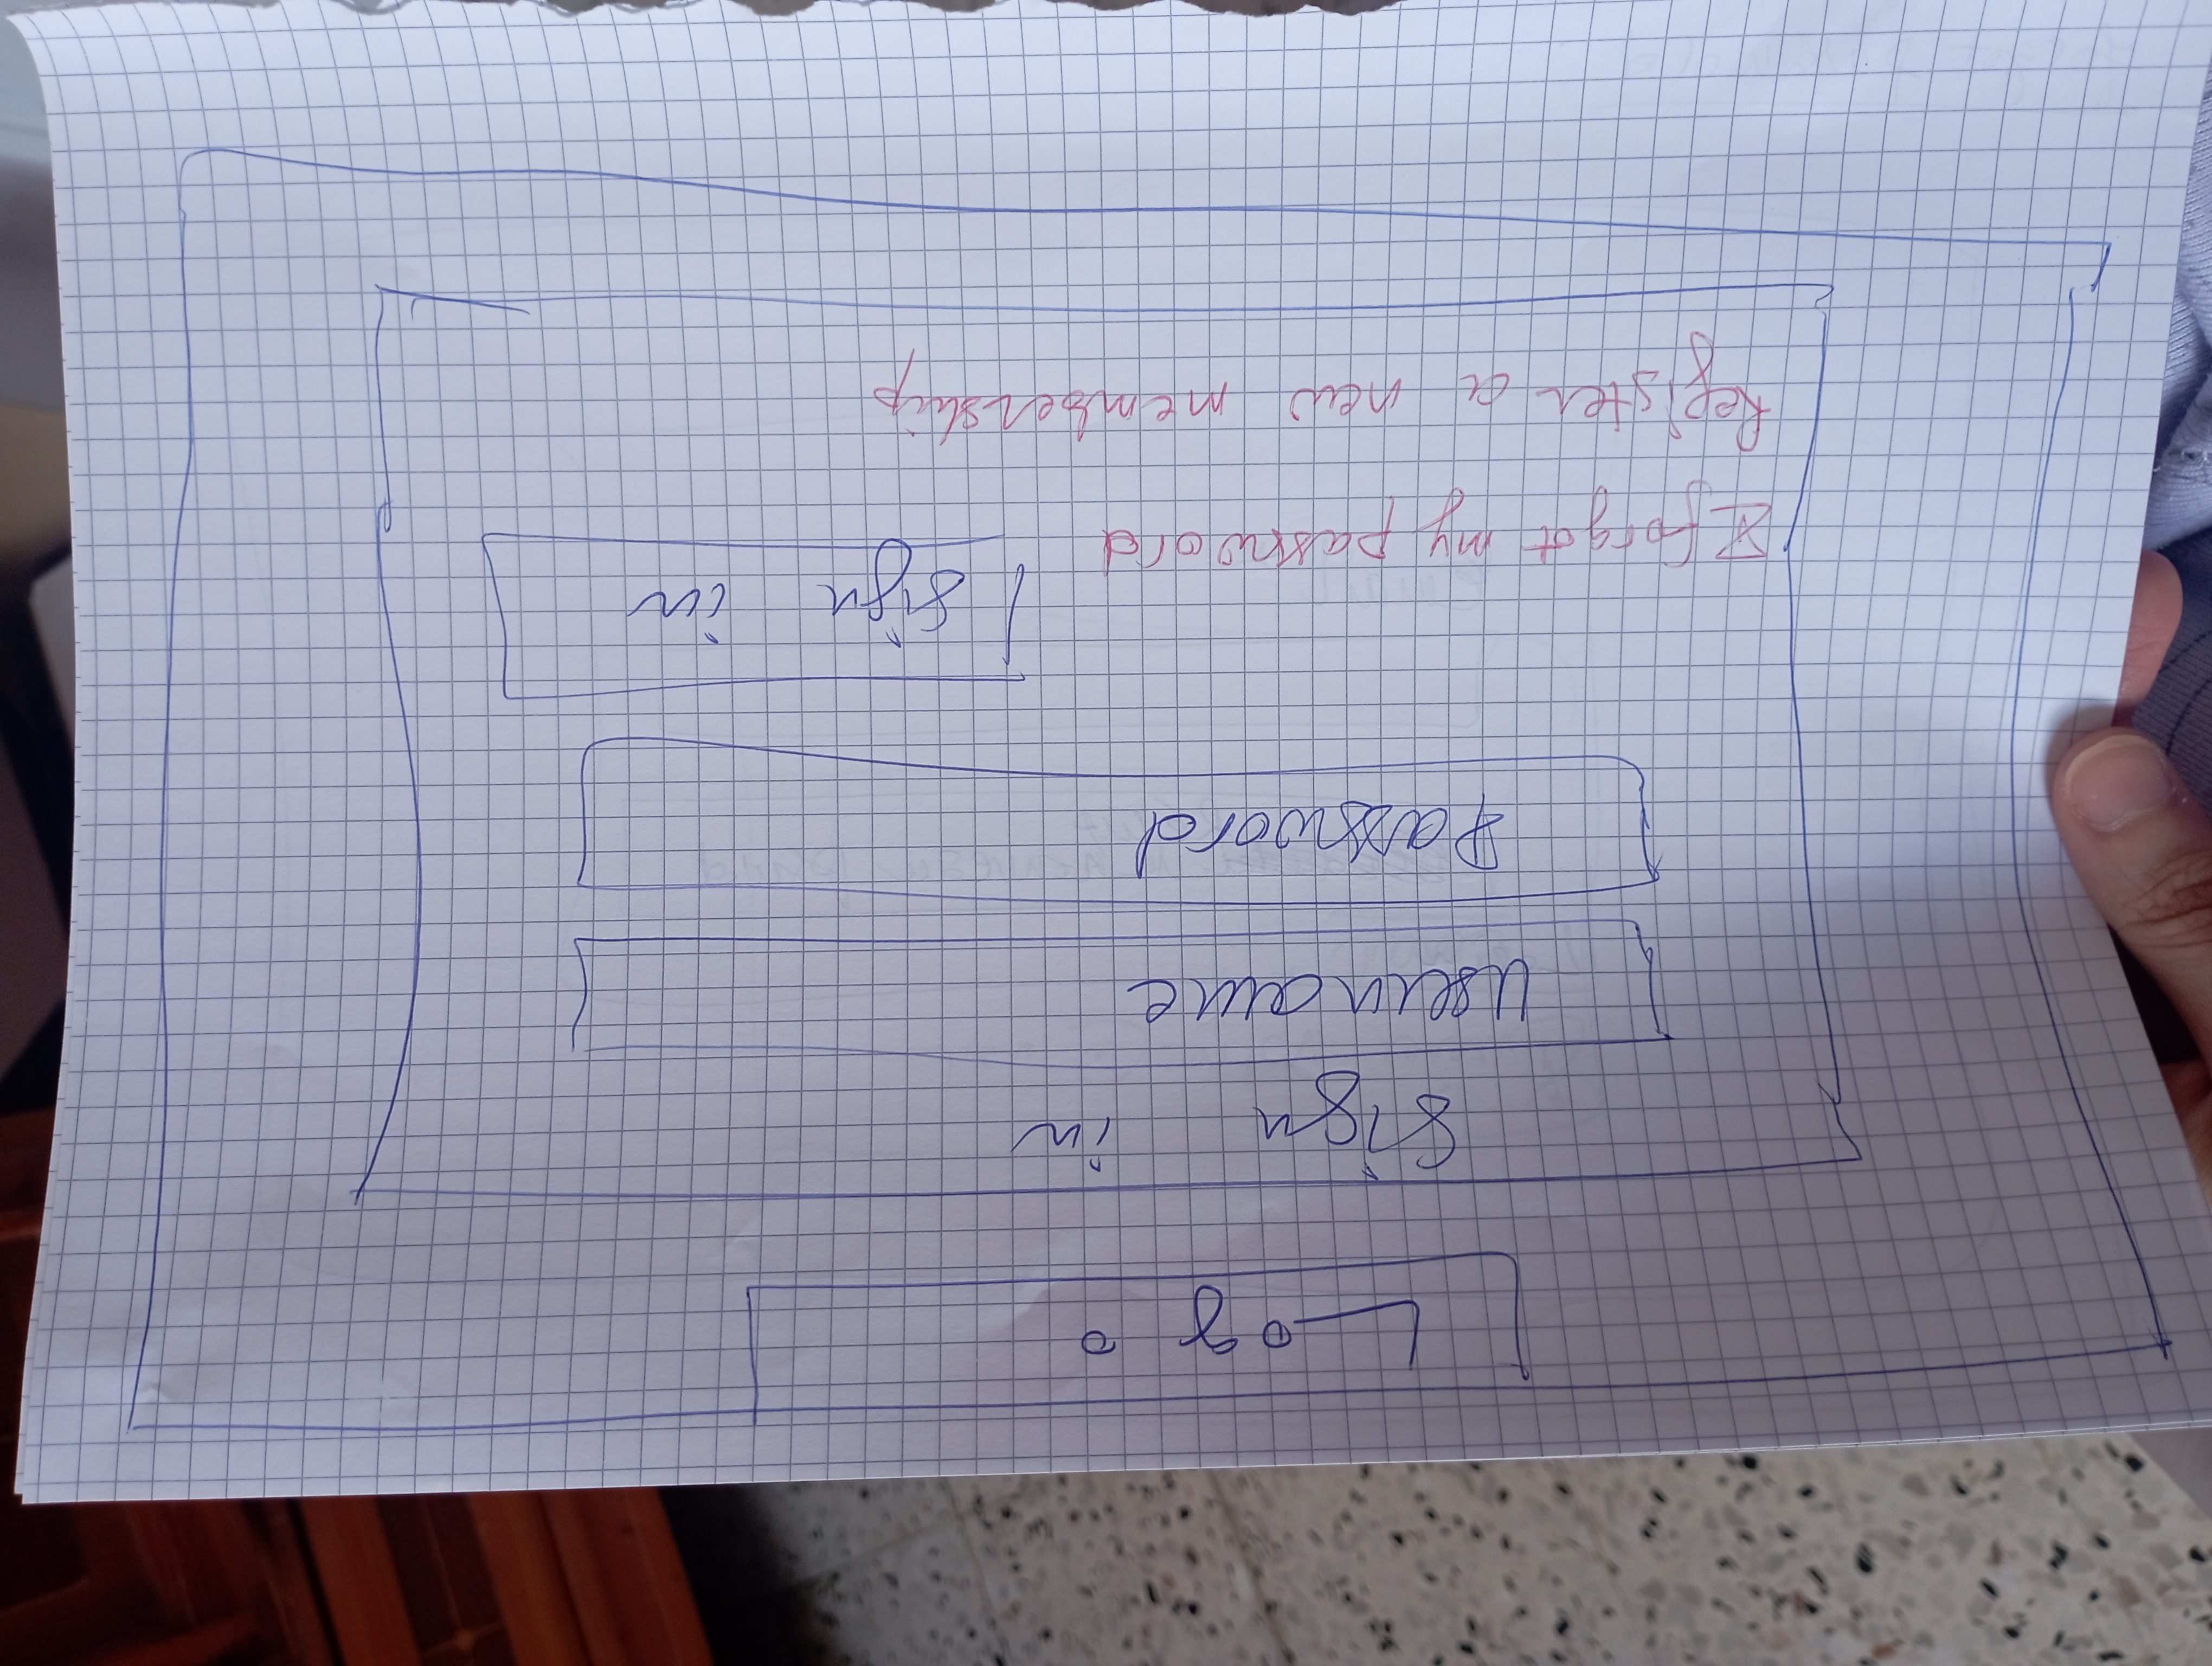 Logo
Sign in
Username
Password
Sign in
I forgot my password
Register a new membership